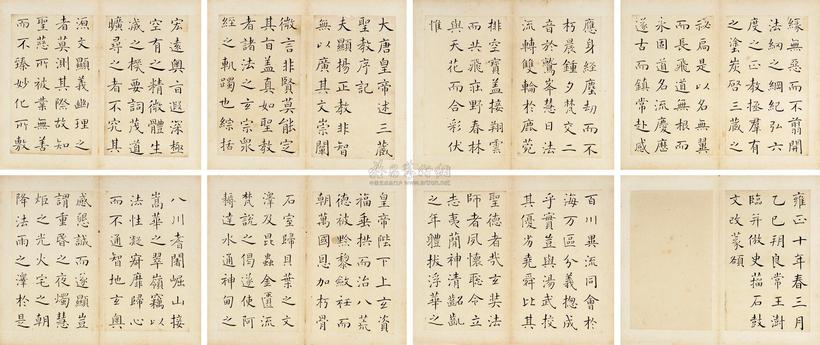 大唐皇帝述三藏
聖教序記
夫顯揚正教非智
無以廣其文崇闡
微言非賢莫能定
其旨蓋真如聖教
者諸法之玄宗衆
經之軌躅也綜括
宏遠奧旨遐深極
空有之精微體生
滅之機要詞茂道
曠尋之者不究其
源文顯義幽理之
者莫測其際故知
聖慈所被業無善
而不臻妙化所敷
緣無惡而不翦開
法網之綱紀弘六
度之正教拯羣有
之塗炭啓三藏之
秘扃是以名無翼
而長飛道無根而
永固道名流慶歷
遂古而鎮常赴感
應身經塵劫而不
朽晨鐘夕梵交二
音於鷲峯慧日法
流轉雙輪於鹿菀
排空寶蓋接翔雲
而共飛莊野春林
與天花而合彩伏
惟
皇帝陛下上玄資
福垂拱而治八荒
德被黔黎斂衽而
朝萬國恩加朽骨
石室歸貝葉之文
澤及昆蟲金匱流
梵說之偈遂使阿
耨達水通神甸之
八川耆闍崛山接
嵩華之翠嶺竊以
法性凝寂靡歸心
而不通智地玄奧
感懇誠而遂顯豈
謂重昏之夜燭慧
炬之光火宅之朝
降法雨之澤於是
百川異流同會於
海萬區分義揔成
乎實豈與湯武校
其優劣堯舜比其
聖德者哉玄奘法
師者夙懷聰令立
志夷蕳神清齠齔
之年體拔浮華之
雍正十年春三月
乙巳朔良常王澍
臨并倣史籀石鼓
文改篆碩
雅昌藝術網
www.artron.net